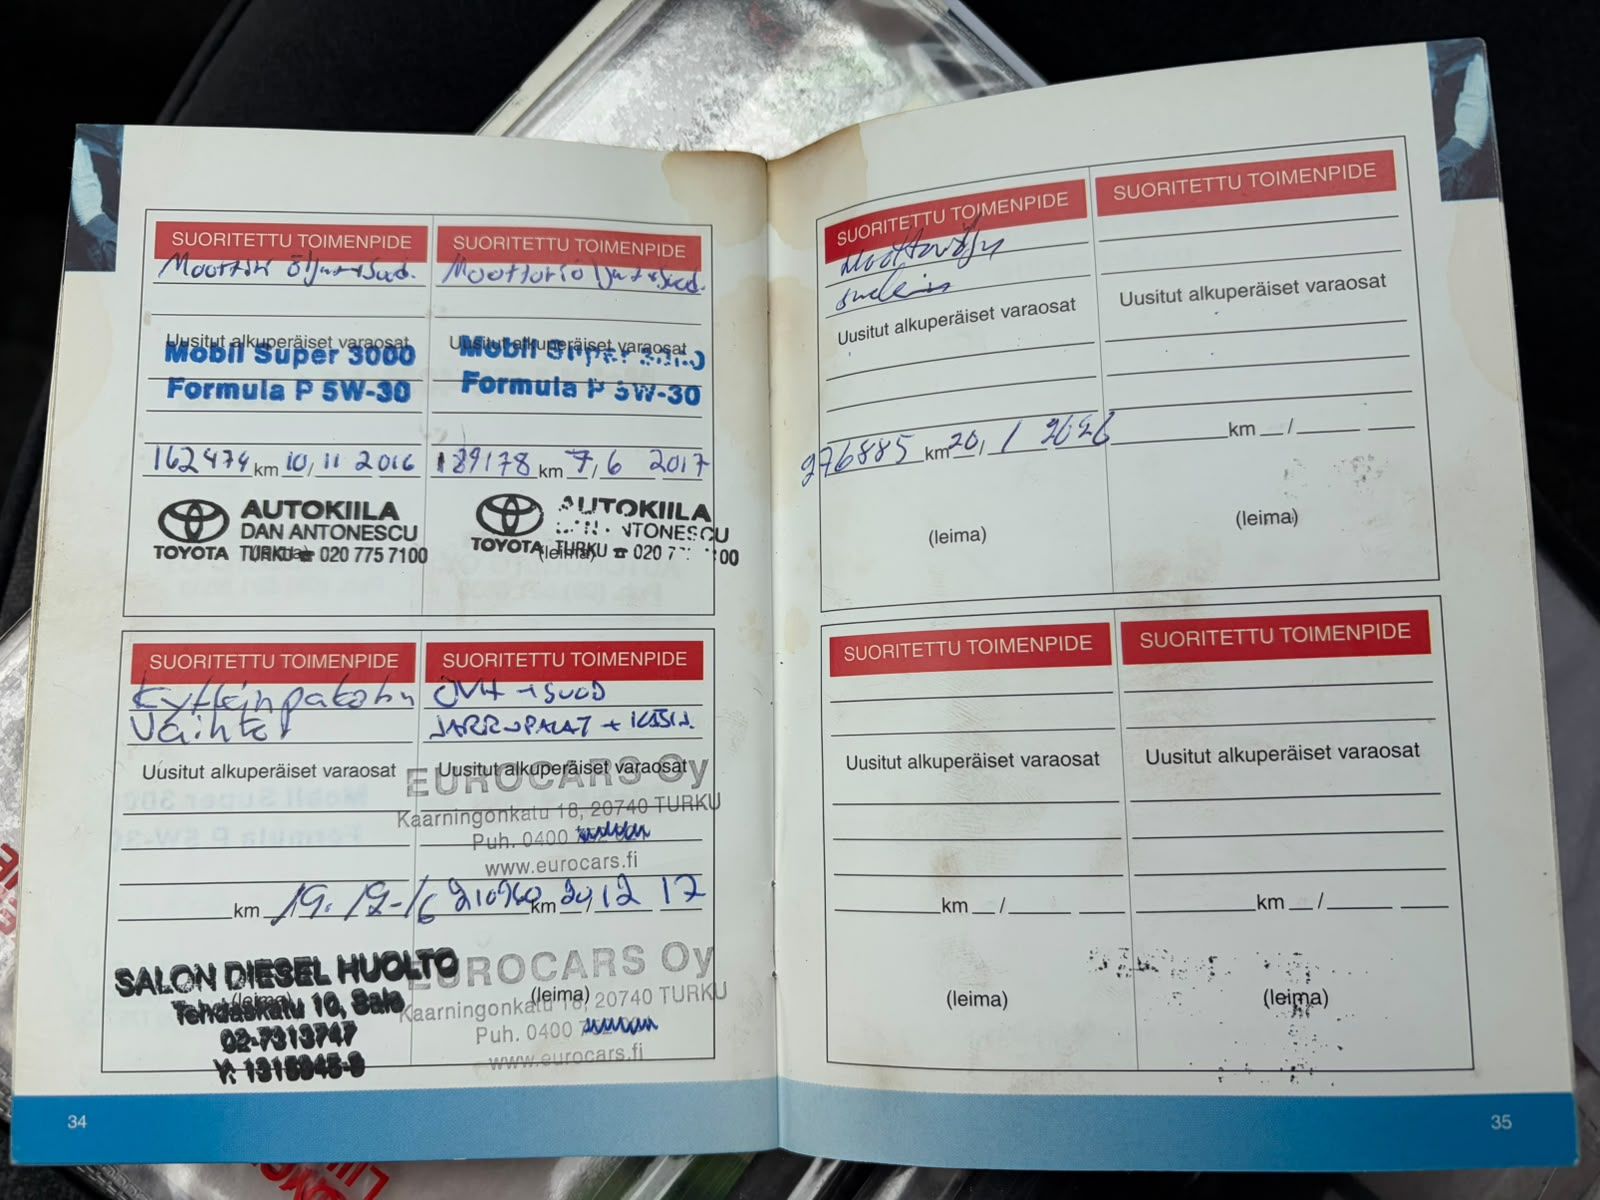 SUORITETTU TOIMENPIDE
Moottori Öljyt+Suod.
Uusitut alkuperäiset varaosat
Mobil Super 3000
Formula P 5W-30
162474 km 10/11 2016
AUTOKIILA
DAN ANTONESCU
TOYOTA TURKU ☎ 020 775 7100
(leima)
SUORITETTU TOIMENPIDE
Moottoriöljyt+Suod.
Uusitut alkuperäiset varaosat
Mobil Super 3000
Formula P 5W-30
189178 km 7/6 2017
AUTOKIILA
ANTONESCU
TOYOTA TURKU ☎ 020 7 00
(leima)
SUORITETTU TOIMENPIDE
Vaihto
Uusitut alkuperäiset varaosat
km 19.12-16
SALON DIESEL HUOLTO
(leima)
Tehdaskatu 10, Salo
02-7313747
Y: 1315945-8
SUORITETTU TOIMENPIDE
ÖVH + SUOD
JARRUPALAT + KÄSIJ.
Uusitut alkuperäiset varaosat
EUROCARS Oy
Kaarningonkatu 18, 20740 TURKU
Puh. 0400
www.eurocars.fi
km 20/12 17
EUROCARS Oy
(leima)
Kaarningonkatu 18, 20740 TURKU
Puh. 0400
www.eurocars.fi
34
SUORITETTU TOIMENPIDE
Moottoriöljy
Uusitut alkuperäiset varaosat
276885 km 20/1 2026
(leima)
SUORITETTU TOIMENPIDE
Uusitut alkuperäiset varaosat
km /
(leima)
SUORITETTU TOIMENPIDE
Uusitut alkuperäiset varaosat
km /
(leima)
SUORITETTU TOIMENPIDE
Uusitut alkuperäiset varaosat
km /
(leima)
35